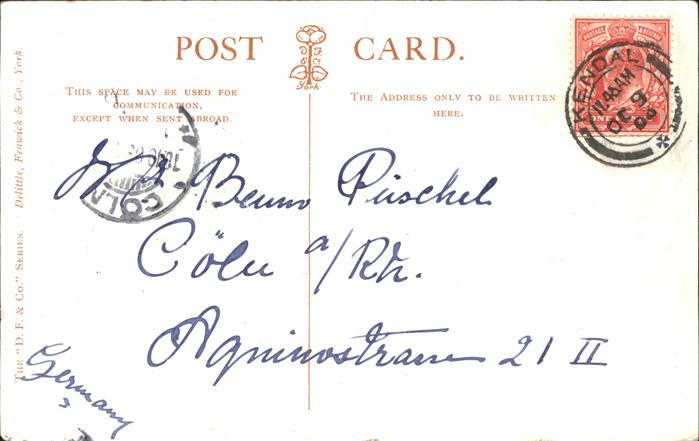 POST CARD.
D F & Co
York
THIS SPACE MAY BE USED FOR
COMMUNICATION,
EXCEPT WHEN SENT ABROAD.
THE ADDRESS ONLY TO BE WRITTEN
HERE.
POSTAGE & REVENUE
ONE
KENDAL
11.45AM
OC 9
COLN
Benno Püschel
Cöln a/Rh.
Agrippastrasse 21 II
Germany
THE "D. F. & CO." SERIES. Delittle, Fenwick & Co., York.